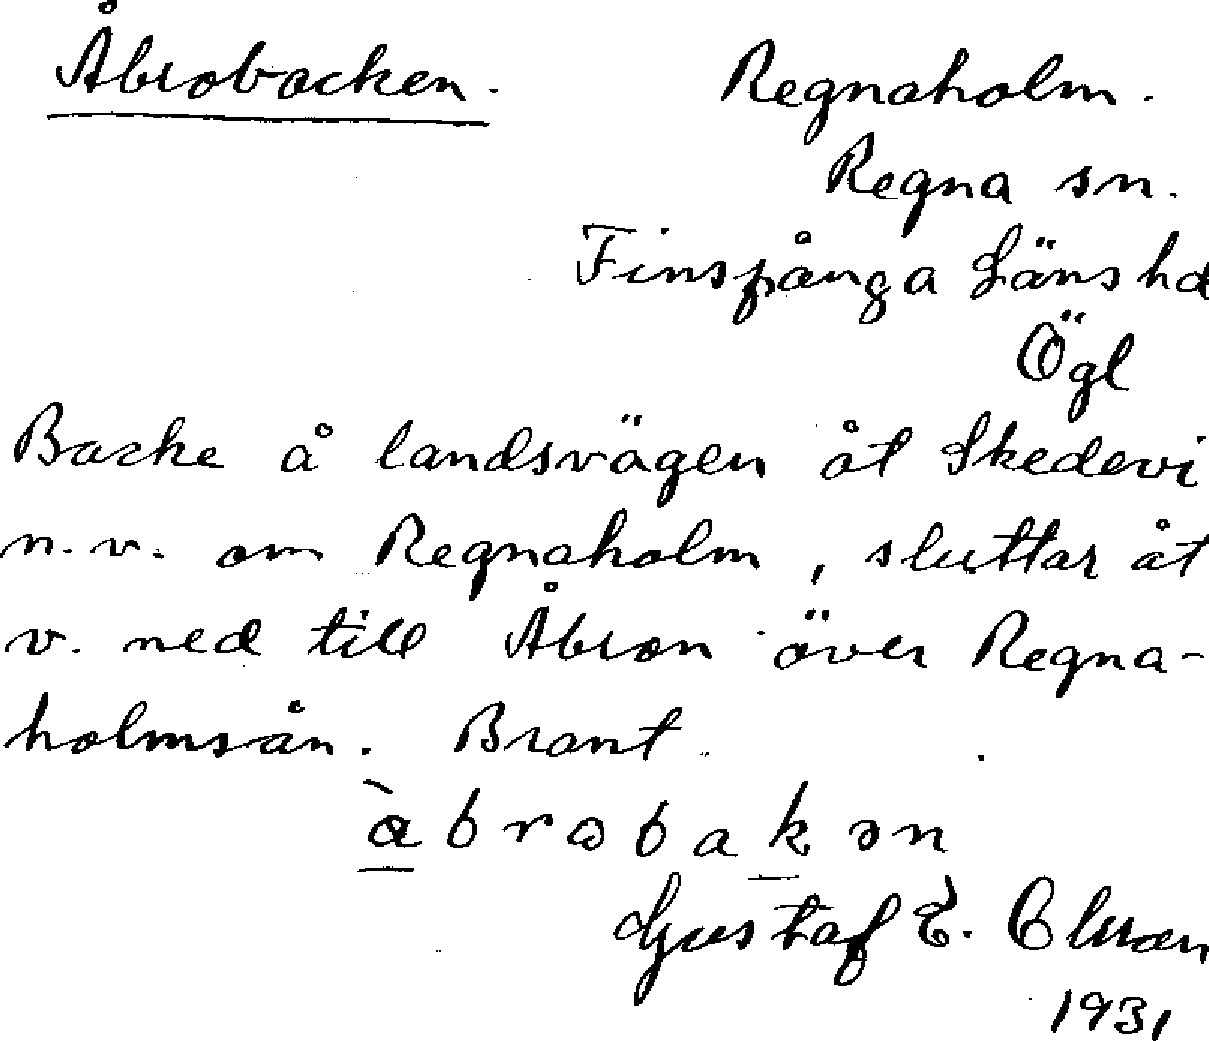 Åbrobacken. Regnaholm.
Regna sn.
Finspånga Läns hd
Ögl
Backe å landsvägen åt Skedevi
n.v. om Regnaholm, sluttar åt
v. ned till Åbron över Regna-
holmsån. Brant.
àbrobakən
Gustaf E. Olsson
1931